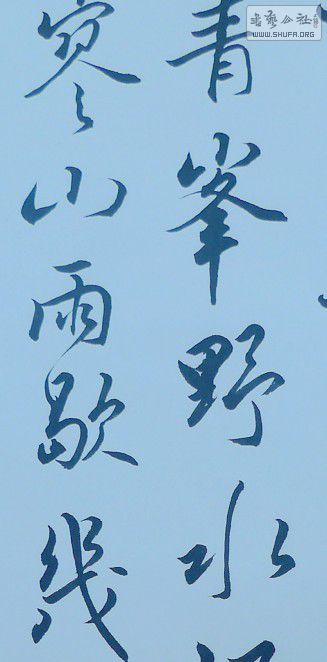 青峯野水
寒山雨歇幾
書藝公社
WWW.SHUFA.ORG